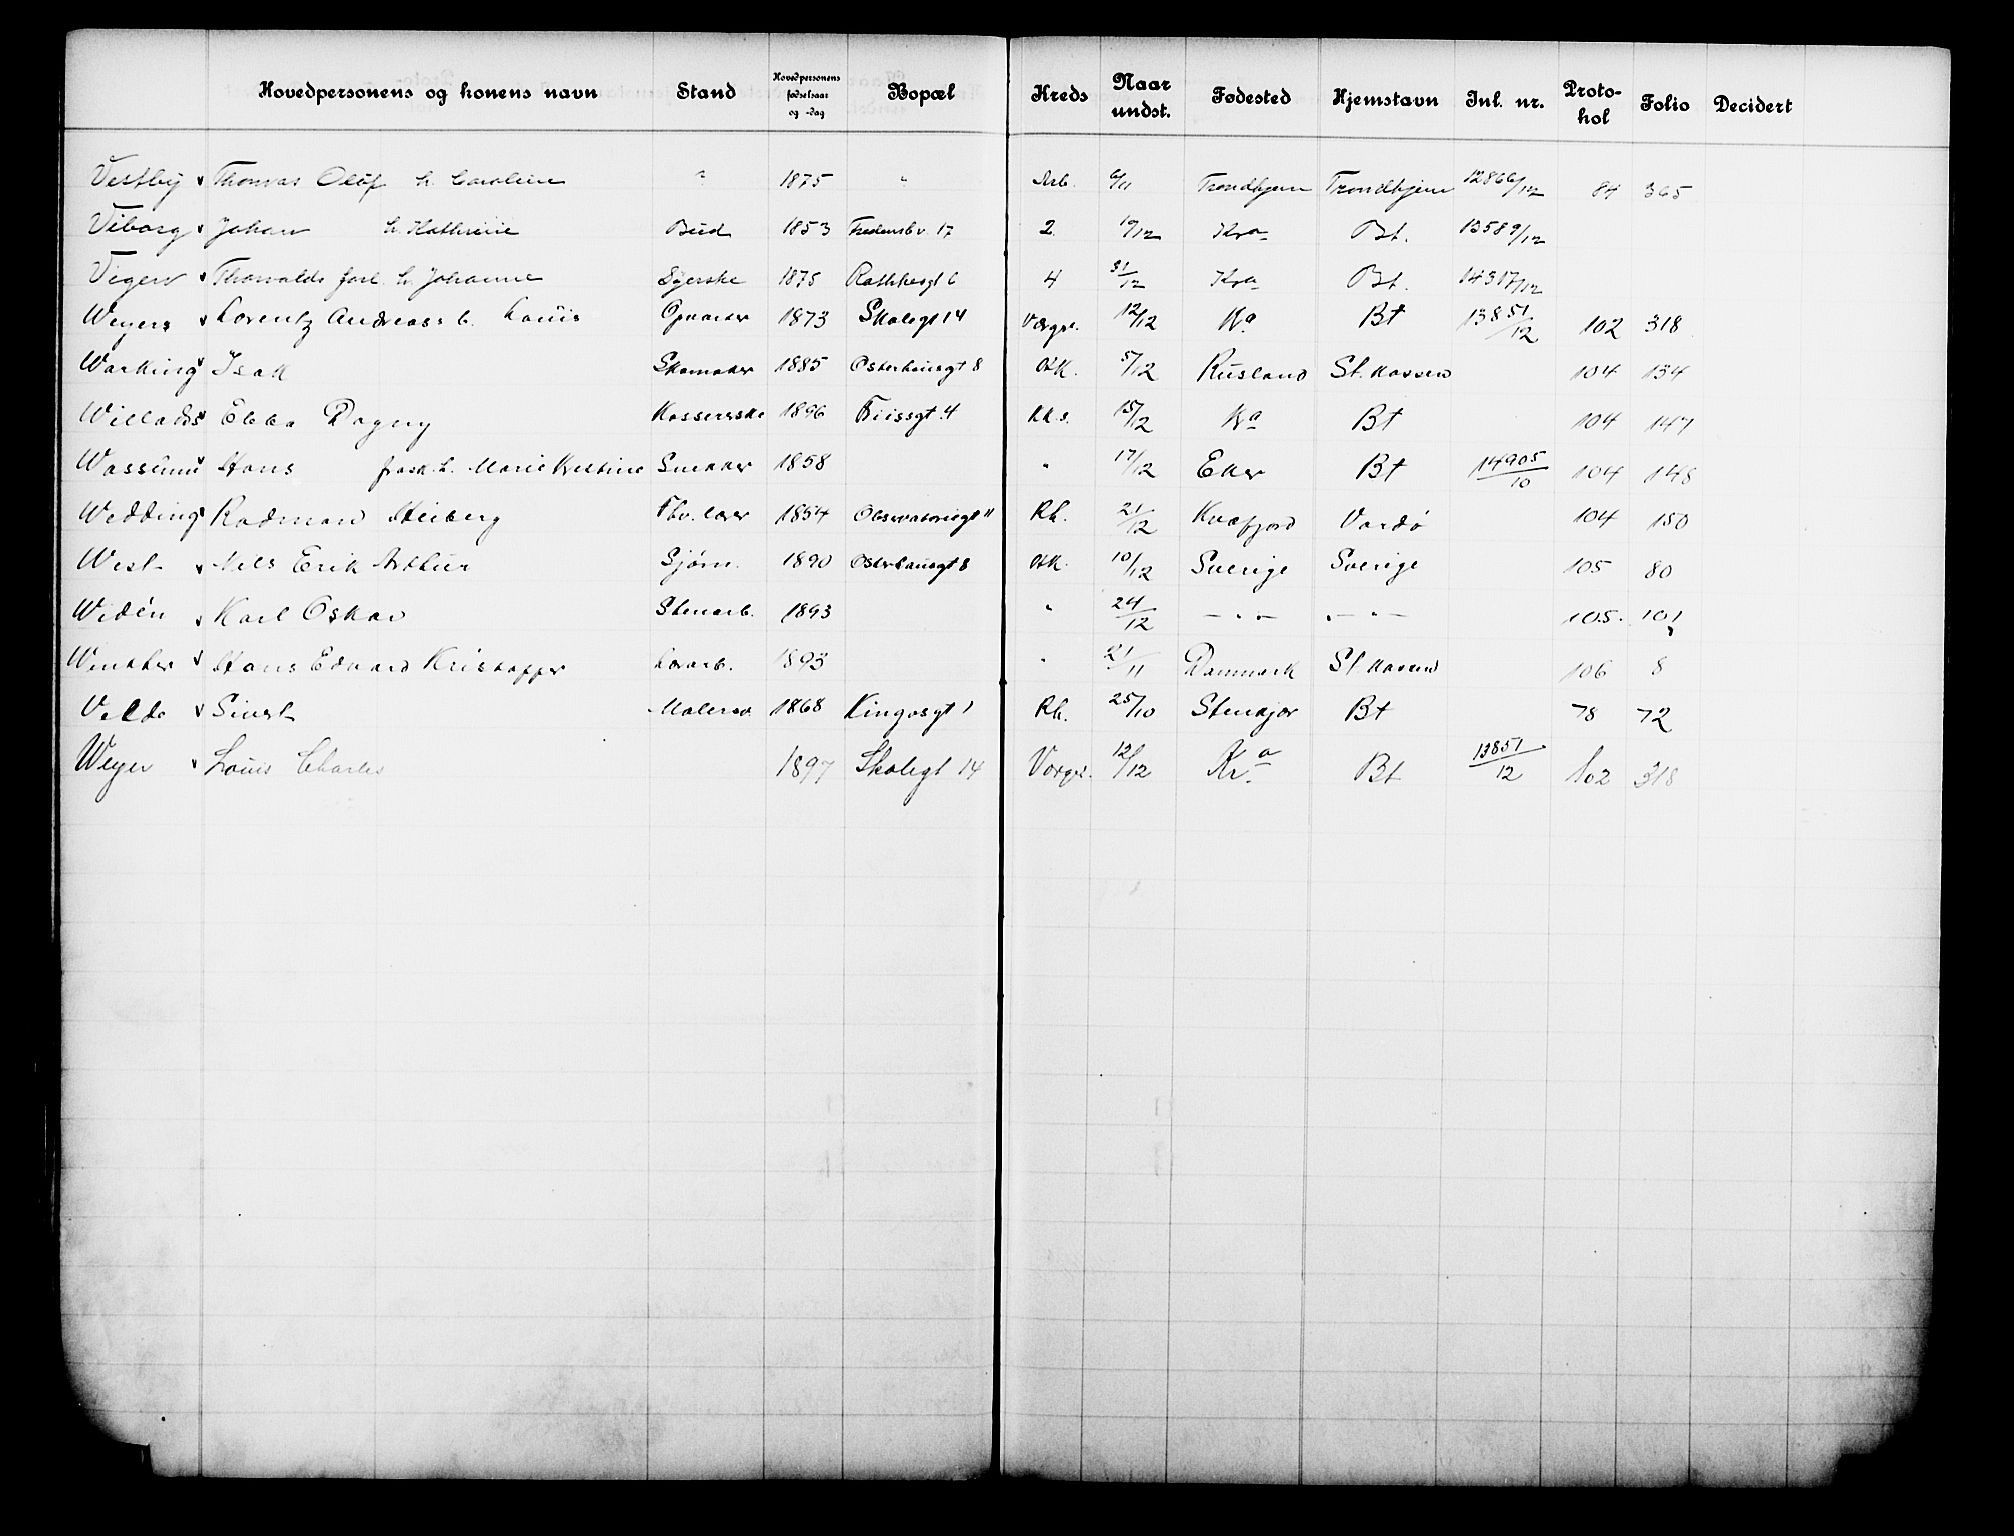 Hovedpersonens og konens navn Stand Hovedpersonens fødselsaar og -dag Bopæl Kreds Naar undst. Fødested Hjemstavn Inl. nr. Proto-kol Folio Decidert
Vestby Thomas Olof h. Caroline " 1875 " Arb. 6/11 Trondhjem Trondhjem 12866/12 84 365
Viborg Johan h. Kathrine Bud 1853 Fredensbv. 17 2 10/12 Kra Bt. 13589/12
Vigen Thorvalds forl. h. Johanne Syerske 1875 Rathkesgt 6 4 31/12 Kra Bt. 14317/12
Weyers Lorentz Andreas h. Louis 1873 Skolegt 14 Værgr. 12/12 Kra Bt 13851/12 102 318
Warking Isak Skomaker 1885 Osterhausgt 8 5/12 Rusland St. kassen 104 134
Willads Ebba Dagny Kassererske 1896 Friissgt. 4 Rk.s. 15/12 Kra Bt 104 147
Hans frask. h. Marie Kristine Snekker 1858 " 17/12 Eker Bt 14905/10 104 148
Wedding Rodman Heiberg Fhv. lærer 1854 Observatoriegt 11 Rh. 21/12 Kvæfjord Vardø 104 150
West Nils Erik Arthur Sjøm. 1890 Osterhausgt 8 10/12 Sverige Sverige 105 80
Widén Karl Oskar Stenarb. 1893 " 24/12 — " — — " — 105. 101
Winther Hans Edvard Kristoffer 1893 " 21/11 Danmark St. kassen 106 8
Velde Sivert Malersv. 1868 Kingosgt 1 Rh. 25/10 Stenkjær Bt 78 72
Weyer Louis Charles 1897 Skolegt 14 Værgr. 12/12 Kra Bt 13851/12 102 318